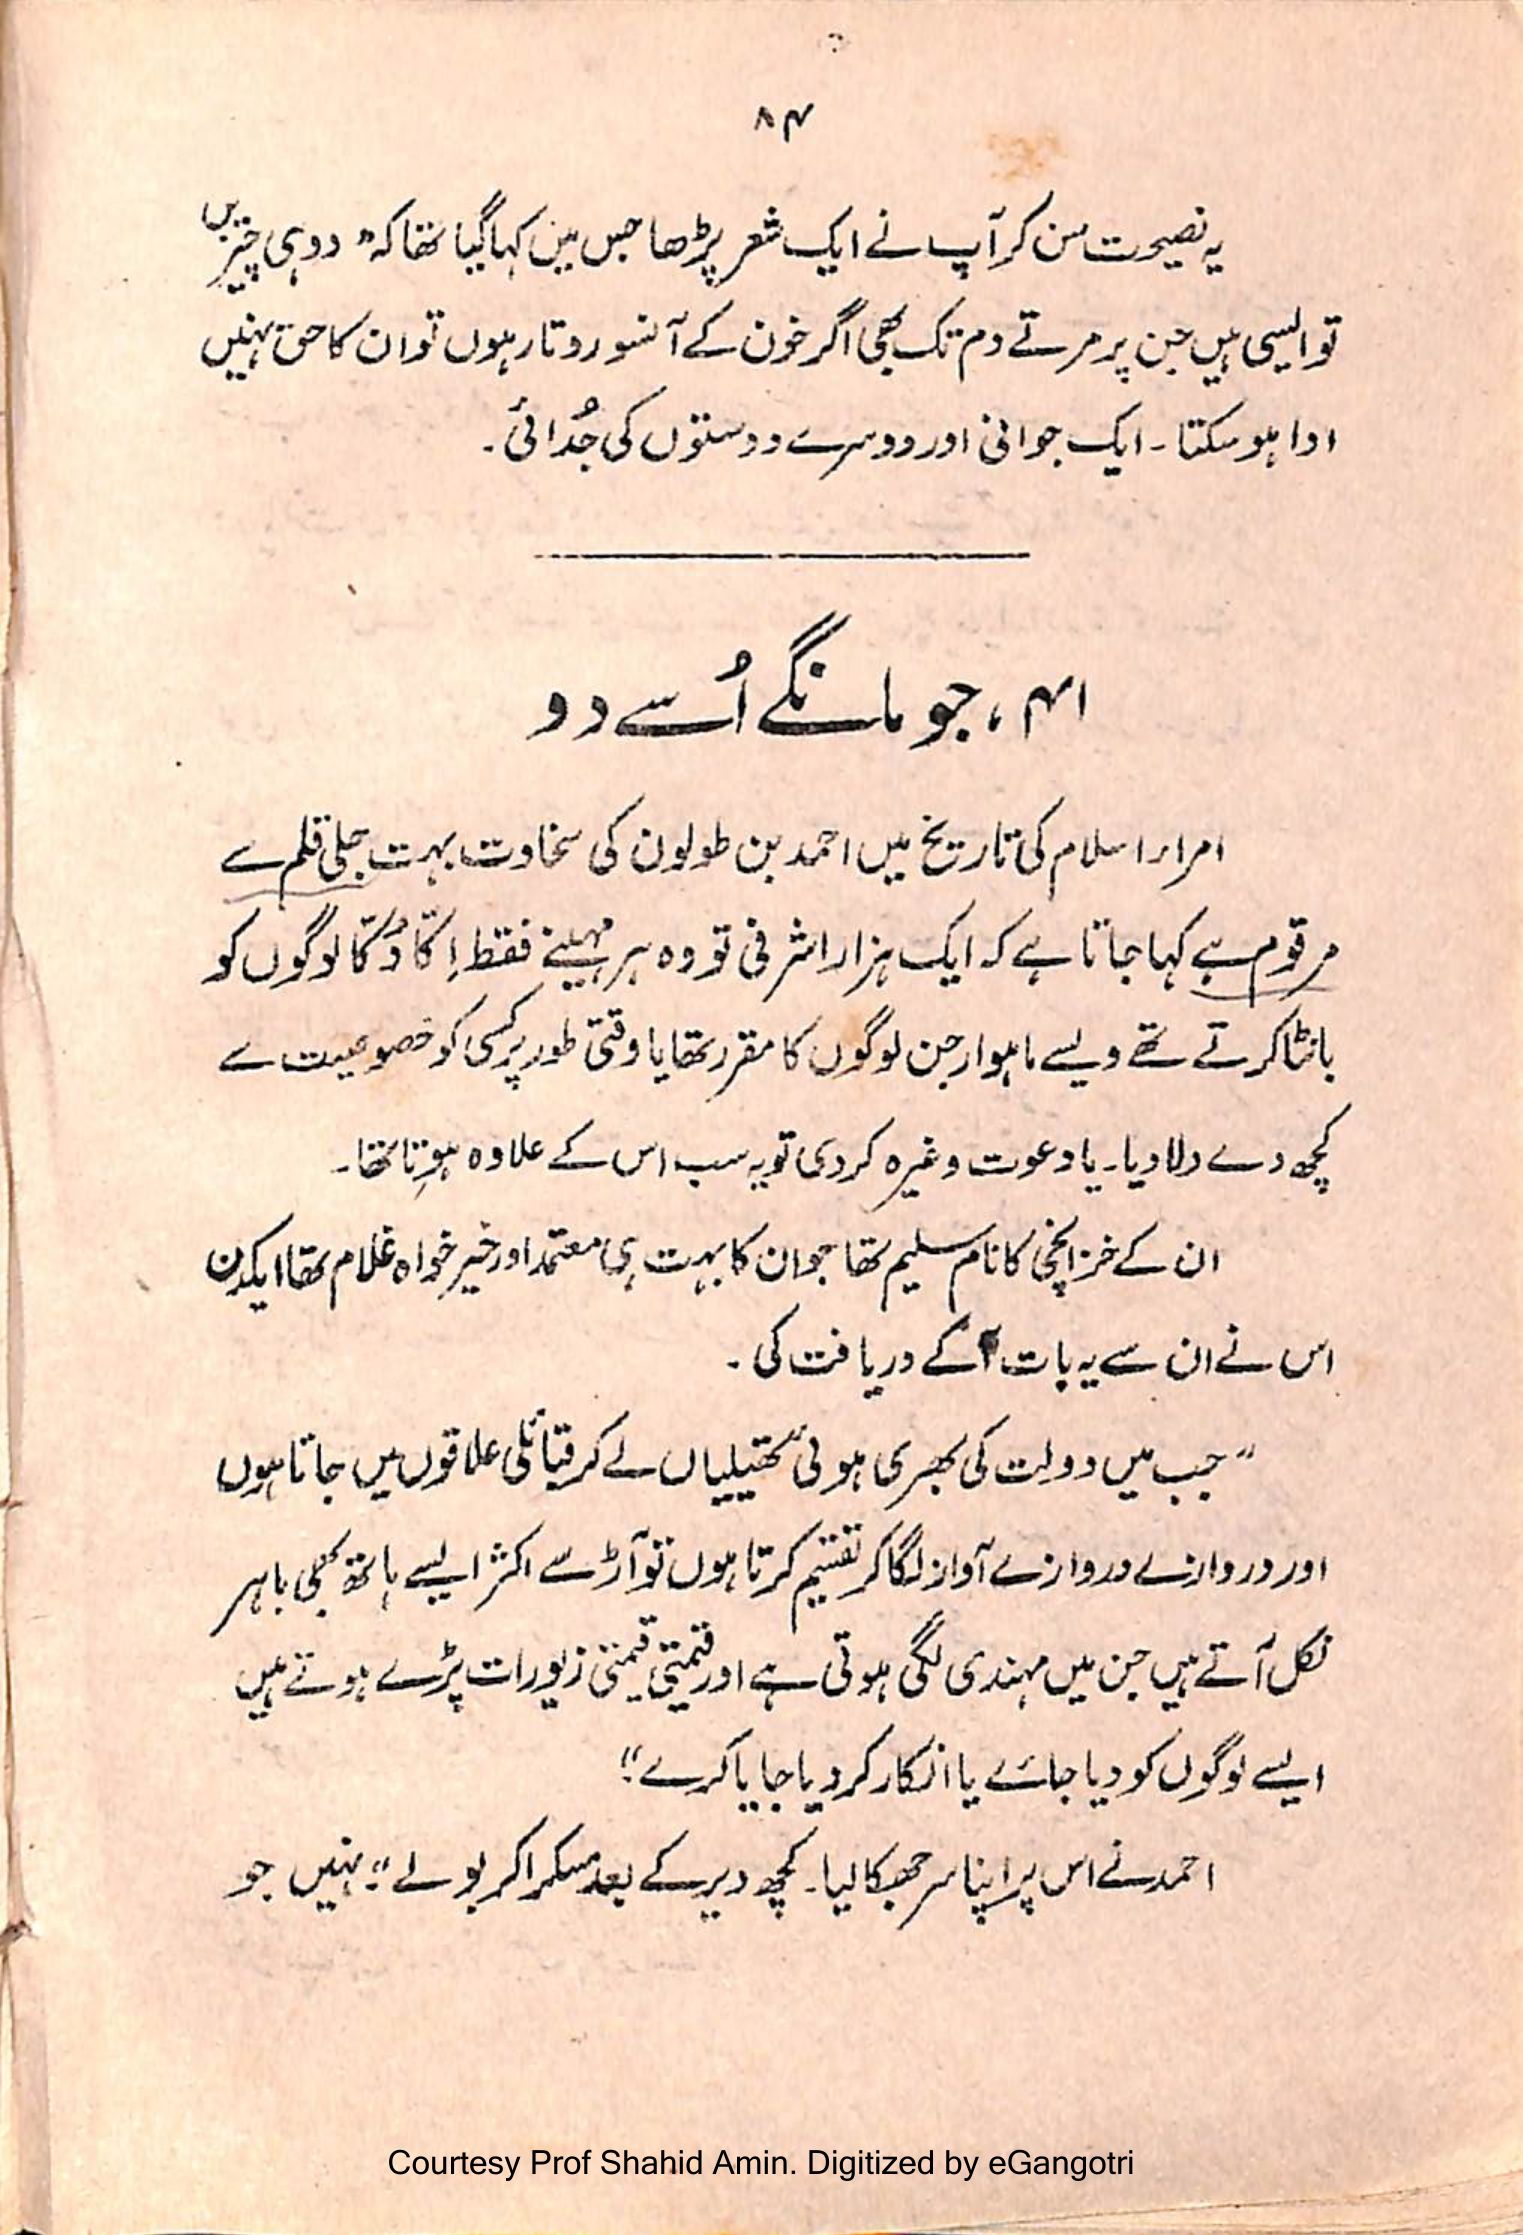 ۸۴
یہ نصیحت سن کر آپ نے ایک شعر پڑھا جس میں کہا گیا تھا کہ "دو ہی چیزیں
تو ایسی ہیں جن پر مرتے دم تک بھی اگر خون کے آنسو روتا رہوں تو ان کا حق نہیں
ادا ہو سکتا ۔ ایک جوانی اور دوسرے دوستوں کی جُدائی ۔
۴۱ ، جو مانگے اُسے دو
امراء اسلام کی تاریخ میں احمد بن طولون کی سخاوت بہت جلی قلم سے
مرقوم ہے کہا جاتا ہے کہ ایک ہزار اشرفی تو وہ ہر مہینے فقط اِکّا دُکّا لوگوں کو
بانٹا کرتے تھے ویسے ماہوار جن لوگوں کا مقرر تھا یا وقتی طور پر کسی کو خصوصیت سے
کچھ دے دلا دیا ۔ یا دعوت وغیرہ کر دی تو یہ سب اس کے علاوہ ہوتا تھا ۔
ان کے خزانچی کا نام سلیم تھا جو ان کا بہت ہی معتمد اور خیر خواہ غلام تھا ایکدن
اس نے ان سے یہ بات آکے دریافت کی ۔
"جب میں دولت کی بھری ہوئی تھیلیاں لے کر قبائلی علاقوں میں جاتا ہوں
اور دروازے دروازے آواز لگا کر تقسیم کرتا ہوں تو آڑ سے اکثر ایسے ہاتھ بھی باہر
نکل آتے ہیں جن میں مہندی لگی ہوتی ہے اور قیمتی قیمتی زیورات پڑے ہوتے ہیں
ایسے لوگوں کو دیا جائے یا انکار کر دیا جایا کرے"؟
احمد نے اس پر اپنا سر جھکا لیا ۔ کچھ دیر کے بعد مسکرا کر بولے "نہیں جو
Courtesy Prof Shahid Amin. Digitized by eGangotri